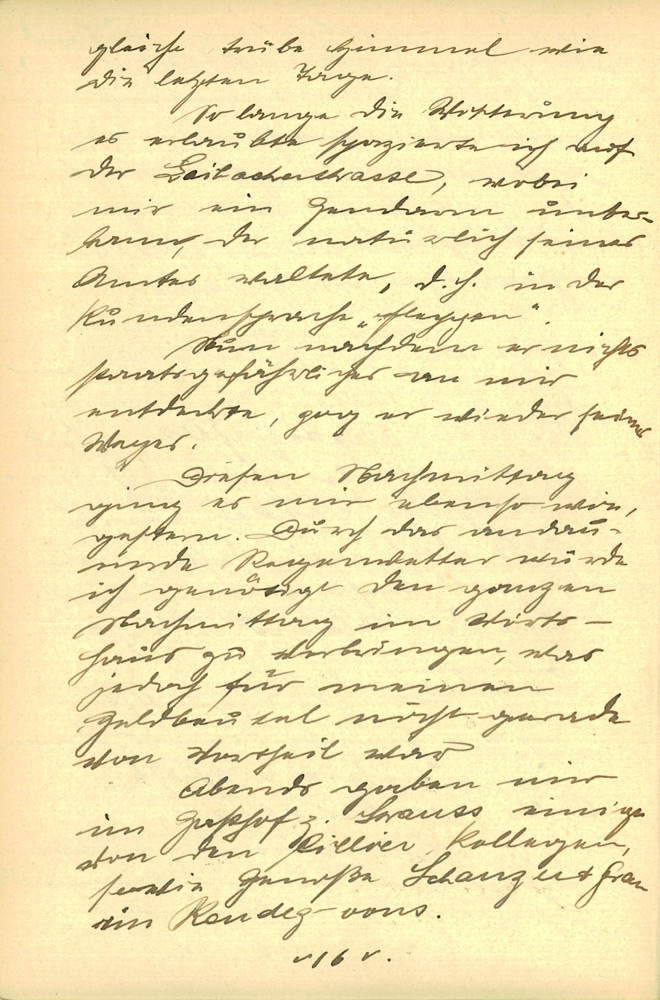 gleiche trübe Himmel wie
die letzten Tage.
So lange die Witterung
es erlaubte spazierte ich auf
der Laibacherstrasse, wobei
mir ein Gendarm unter-
kam, der natürlich seines
Amtes waltete, d. h. in der
Kundensprache „fleppen".
Nun nachdem er nichts
staatsgefährliches an mir
entdeckte, zog er wieder seines
Weges.
Diesen Nachmittag
ging es mir ebenso wie,
gestern. Durch das andau-
ernde Regenwetter wurde
ich genötigt den ganzen
Nachmittag im Wirts-
haus zu verbringen, was
jedoch für meinen
Geldbeutel nicht gerade
von Vortheil war
Abends gaben mir
im Gasthof z. Strauss einige
von den Cillier Kollegen,
sowie Genoße Schanzer & Frau
ein Rendez-vous.
16.